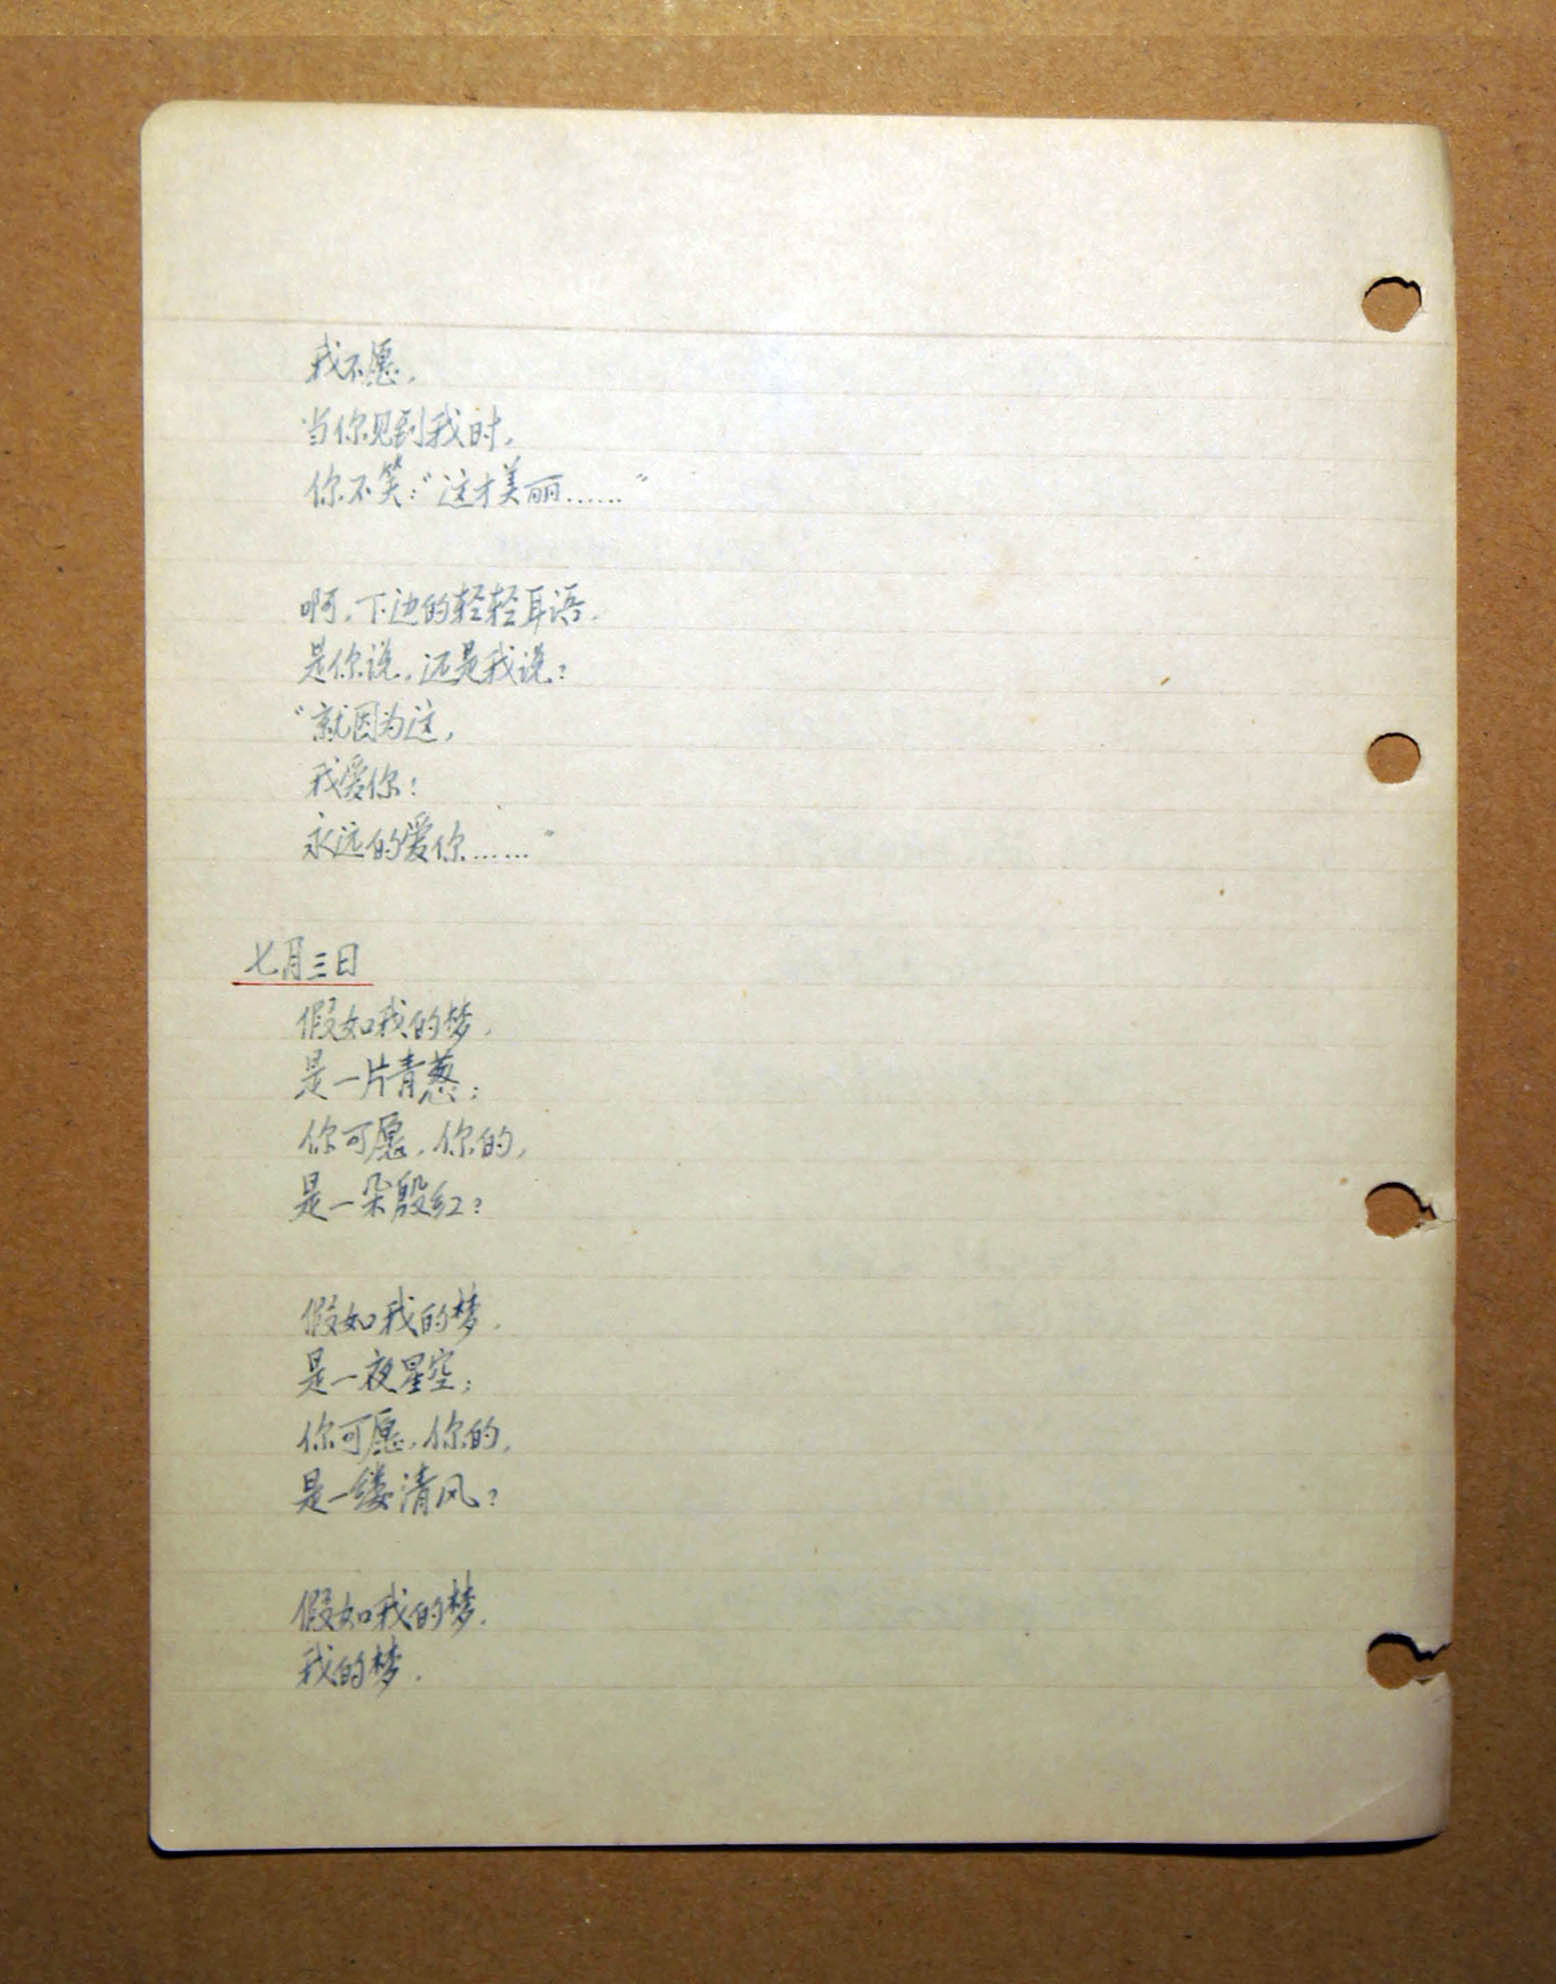 我不愿，
当你见到我时，
你不笑：“这才美丽……”
啊，下边的轻轻耳语，
是你说，还是我说：
“就因为这，
我爱你！
永远的爱你……”
七月三日
假如我的梦，
是一片青葱；
你可愿，你的，
是一朵殷红？
假如我的梦，
是一夜星空；
你可愿，你的，
是一缕清风？
假如我的梦，
我的梦，